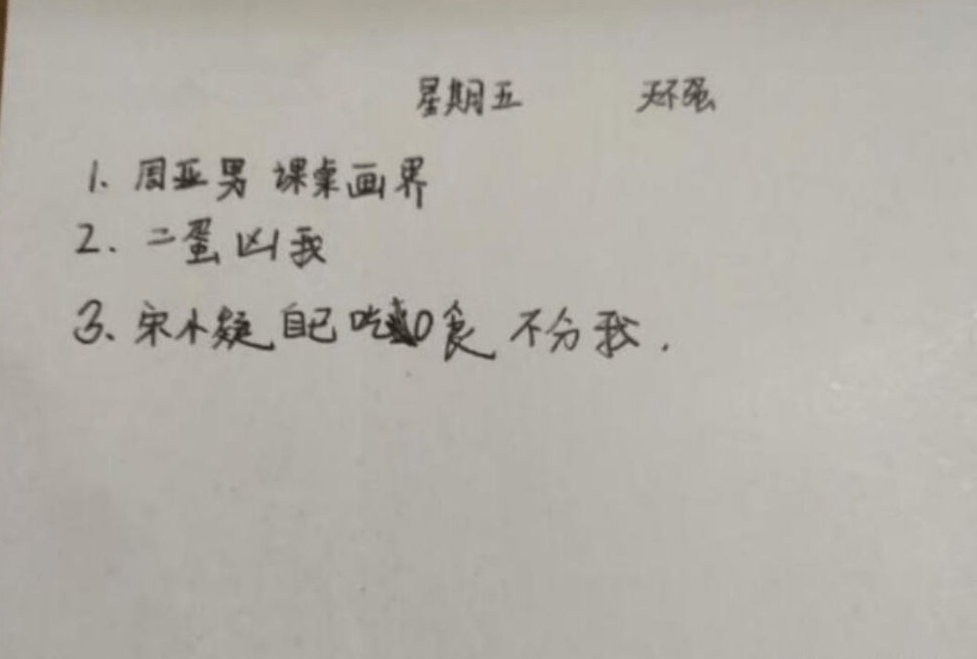 星期五 天不强
1. 周亚男 课桌画界
2. 二蛋凶我
3. 宋小疑 自己吃 食 不分我.